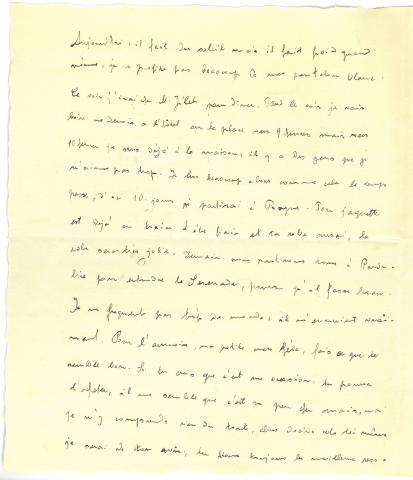 Aujourd'hui, il fait du soleil mais il fait froid quand
même, je ne profite pas beaucoup de mes pantalon blanc.
Ce soir j'aurai M. pour diner. Tout le soir je vais
boire à l'hôtel sur la place vers 9 heures mais vers
10 heures je suis déjà à la maison, il y a des gens que je
n'aime pas trop. Je lis beaucoup alors comme cela le temps
passe, d'ici 10 jours je partirai à Prague. Ton jaquette
est déjà en train d'être finie et ta robe aussi, la
robe sera très jolie. Demain nous partirons à
pour entendre la Serenade, pourvu qu'il fasse beau.
Je ne fréquente pas trop de monde, il m'
ment. Pour l', ma petite mère, fais ce que te
semble bon. Si tu crois que c'est une occasion, tu pourras
l', il me semble que c'est un peu cher mais, moi
je n'y comprends rien du tout, alors décide cela toi même
je serai de ton avis, tu toujours la meilleure